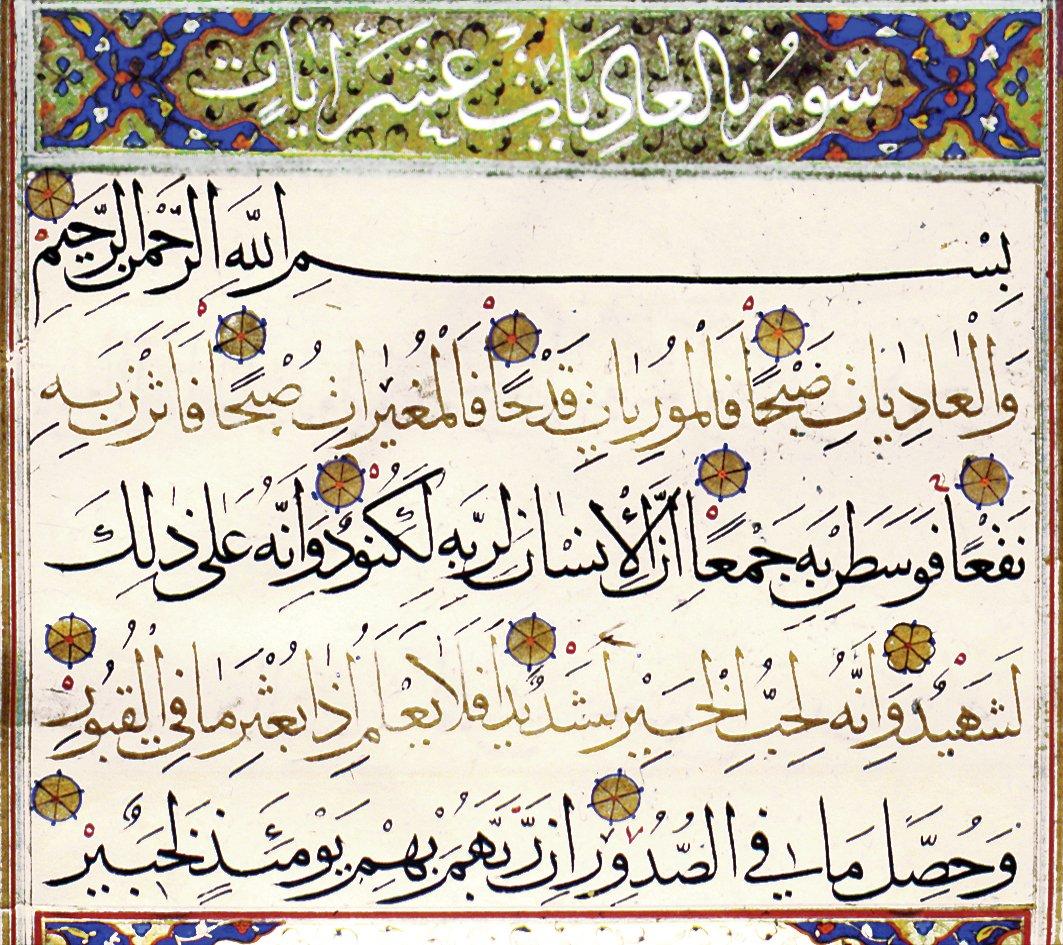 سورة العاديات عشر ايات
بِسْمِ اللَّهِ الرَّحْمنِ الرَّحِيمِ
وَالْعادِياتِ ضَبْحًا فَالْمُورِياتِ قَدْحًا فَالْمُغِيراتِ صُبْحًا فَاَثَرْنَ بِهِ
نَقْعًا فَوَسَطْنَ بِهِ جَمْعًا اِنَّ الْاِنْسانَ لِرَبِّهِ لَكَنُودٌ وَاِنَّهُ عَلى ذلِكَ
لَشَهِيدٌ وَاِنَّهُ لِحُبِّ الْخَيْرِ لَشَدِيدٌ اَفَلَا يَعْلَمُ اِذا بُعْثِرَ ما فِي الْقُبُورِ
وَحُصِّلَ ما فِي الصُّدُورِ اِنَّ رَبَّهُمْ بِهِمْ يَوْمَئِذٍ لَخَبِيرٌ